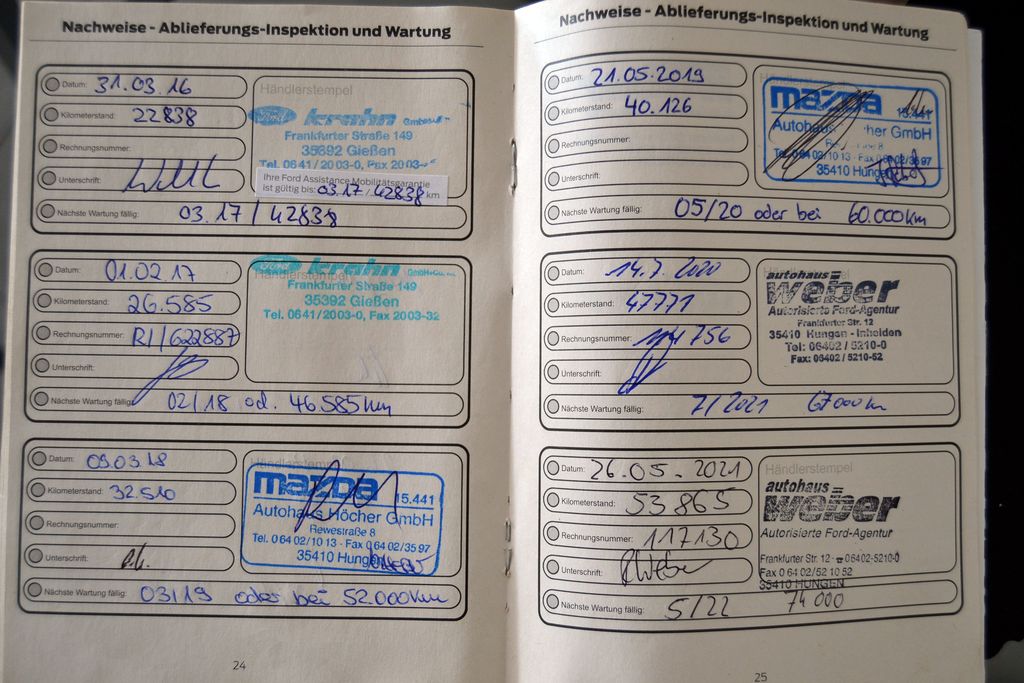 Nachweise - Ablieferungs-Inspektion und Wartung
Datum: 31.03.16
Kilometerstand: 22838
Rechnungsnummer:
Unterschrift:
Händlerstempel
Ford krahn
Frankfurter Straße 149
35392 Gießen
Tel. 0641/2003-0, Fax 2003-
Ihre Ford Assistance Mobilitätsgarantie
ist gültig bis: 03.17 / 42838 km
Nächste Wartung fällig: 03.17 / 42838
Datum: 01.02.17
Kilometerstand: 26.585
Rechnungsnummer: RI/622887
Unterschrift:
Händlerstempel
Ford krahn GmbH+Co.
Frankfurter Straße 149
35392 Gießen
Tel. 0641/2003-0, Fax 2003-32
Nächste Wartung fällig: 02/18 od. 46.585 km
Datum: 09.03.18
Kilometerstand: 32.510
Rechnungsnummer:
Unterschrift:
Händlerstempel
mazda 15.441
Autohaus Höcher GmbH
Rewestraße 8
Tel. 0 64 02/10 13 - Fax 0 64 02/35 97
35410 Hungen
Nächste Wartung fällig: 03/19 oder bei 52.000km
24
Nachweise - Ablieferungs-Inspektion und Wartung
Datum: 21.05.2019
Kilometerstand: 40.126
Rechnungsnummer:
Unterschrift:
mazda 15.441
Autohaus Höcher GmbH
Tel. 0 64 02/10 13 - Fax 0 64 02/35 97
35410 Hungen
Nächste Wartung fällig: 05/20 oder bei 60.000km
Datum: 14.7.2020
Kilometerstand: 47771
Rechnungsnummer: 114756
Unterschrift:
Händlerstempel
autohaus
weber
Autorisierte Ford-Agentur
Frankfurter Str. 12
35410 Hungen - Inheiden
Tel: 06402 / 5210-0
Fax: 06402 / 5210-52
Nächste Wartung fällig: 7/2021 67000 km
Datum: 26.05.2021
Kilometerstand: 53865
Rechnungsnummer: 117130
Unterschrift:
Händlerstempel
autohaus
weber
Autorisierte Ford-Agentur
Frankfurter Str. 12 - ☎ 06402-5210-0
Fax 0 64 02/52 10 52
35410 HUNGEN
Nächste Wartung fällig: 5/22 74000
25